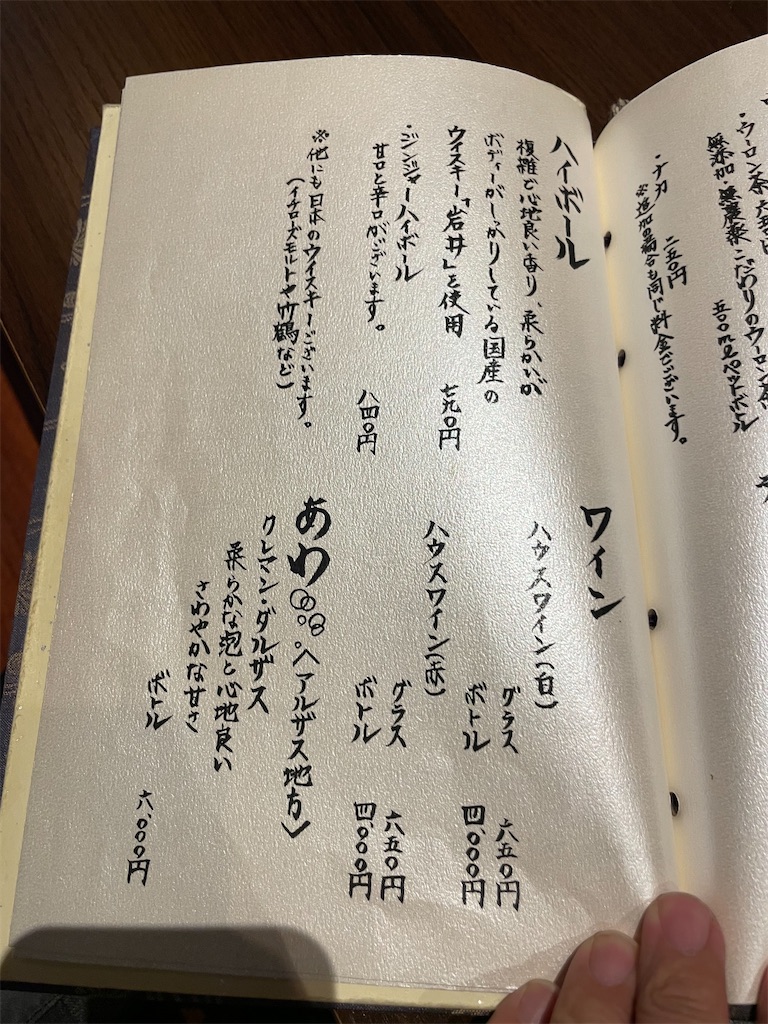 ウーロン茶 六五〇円
無添加・無農薬 こだわりのウーロン茶
五〇〇mlペットボトル
・デカ 二五〇円
お追加の場合も同じ料金でございます。
ハイボール
複雑で心地良い香り、柔らかいが
ボディーがしっかりしている国産の
ウイスキー「岩井」を使用
七九〇円
・ジンジャーハイボール
甘口と辛口がございます。
八四〇円
※他にも日本のウイスキーございます。
(イチローズモルトや竹鶴など)
ワイン
ハウスワイン(白)
グラス 六五〇円
ボトル 四、〇〇〇円
ハウスワイン(赤)
グラス 六五〇円
ボトル 四、〇〇〇円
あわ 〈アルザス地方〉
クレマン・ダルザス
柔らかな泡と心地良い
さわやかな甘さ
ボトル 六、〇〇〇円